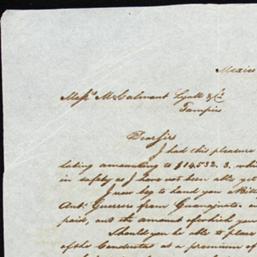 Mexico
Mess.rs McCalmont Lyall & Co
Tampico
Dear Sirs
I had this pleasure
amounting to $14,532.3, which
in safety as I have not been able yet
I now beg to hand you a Bill
Ant.o Guerrero from Guanajuato
paid, and the amount of which you
Should you be able to place
of the Conductor as a premium of